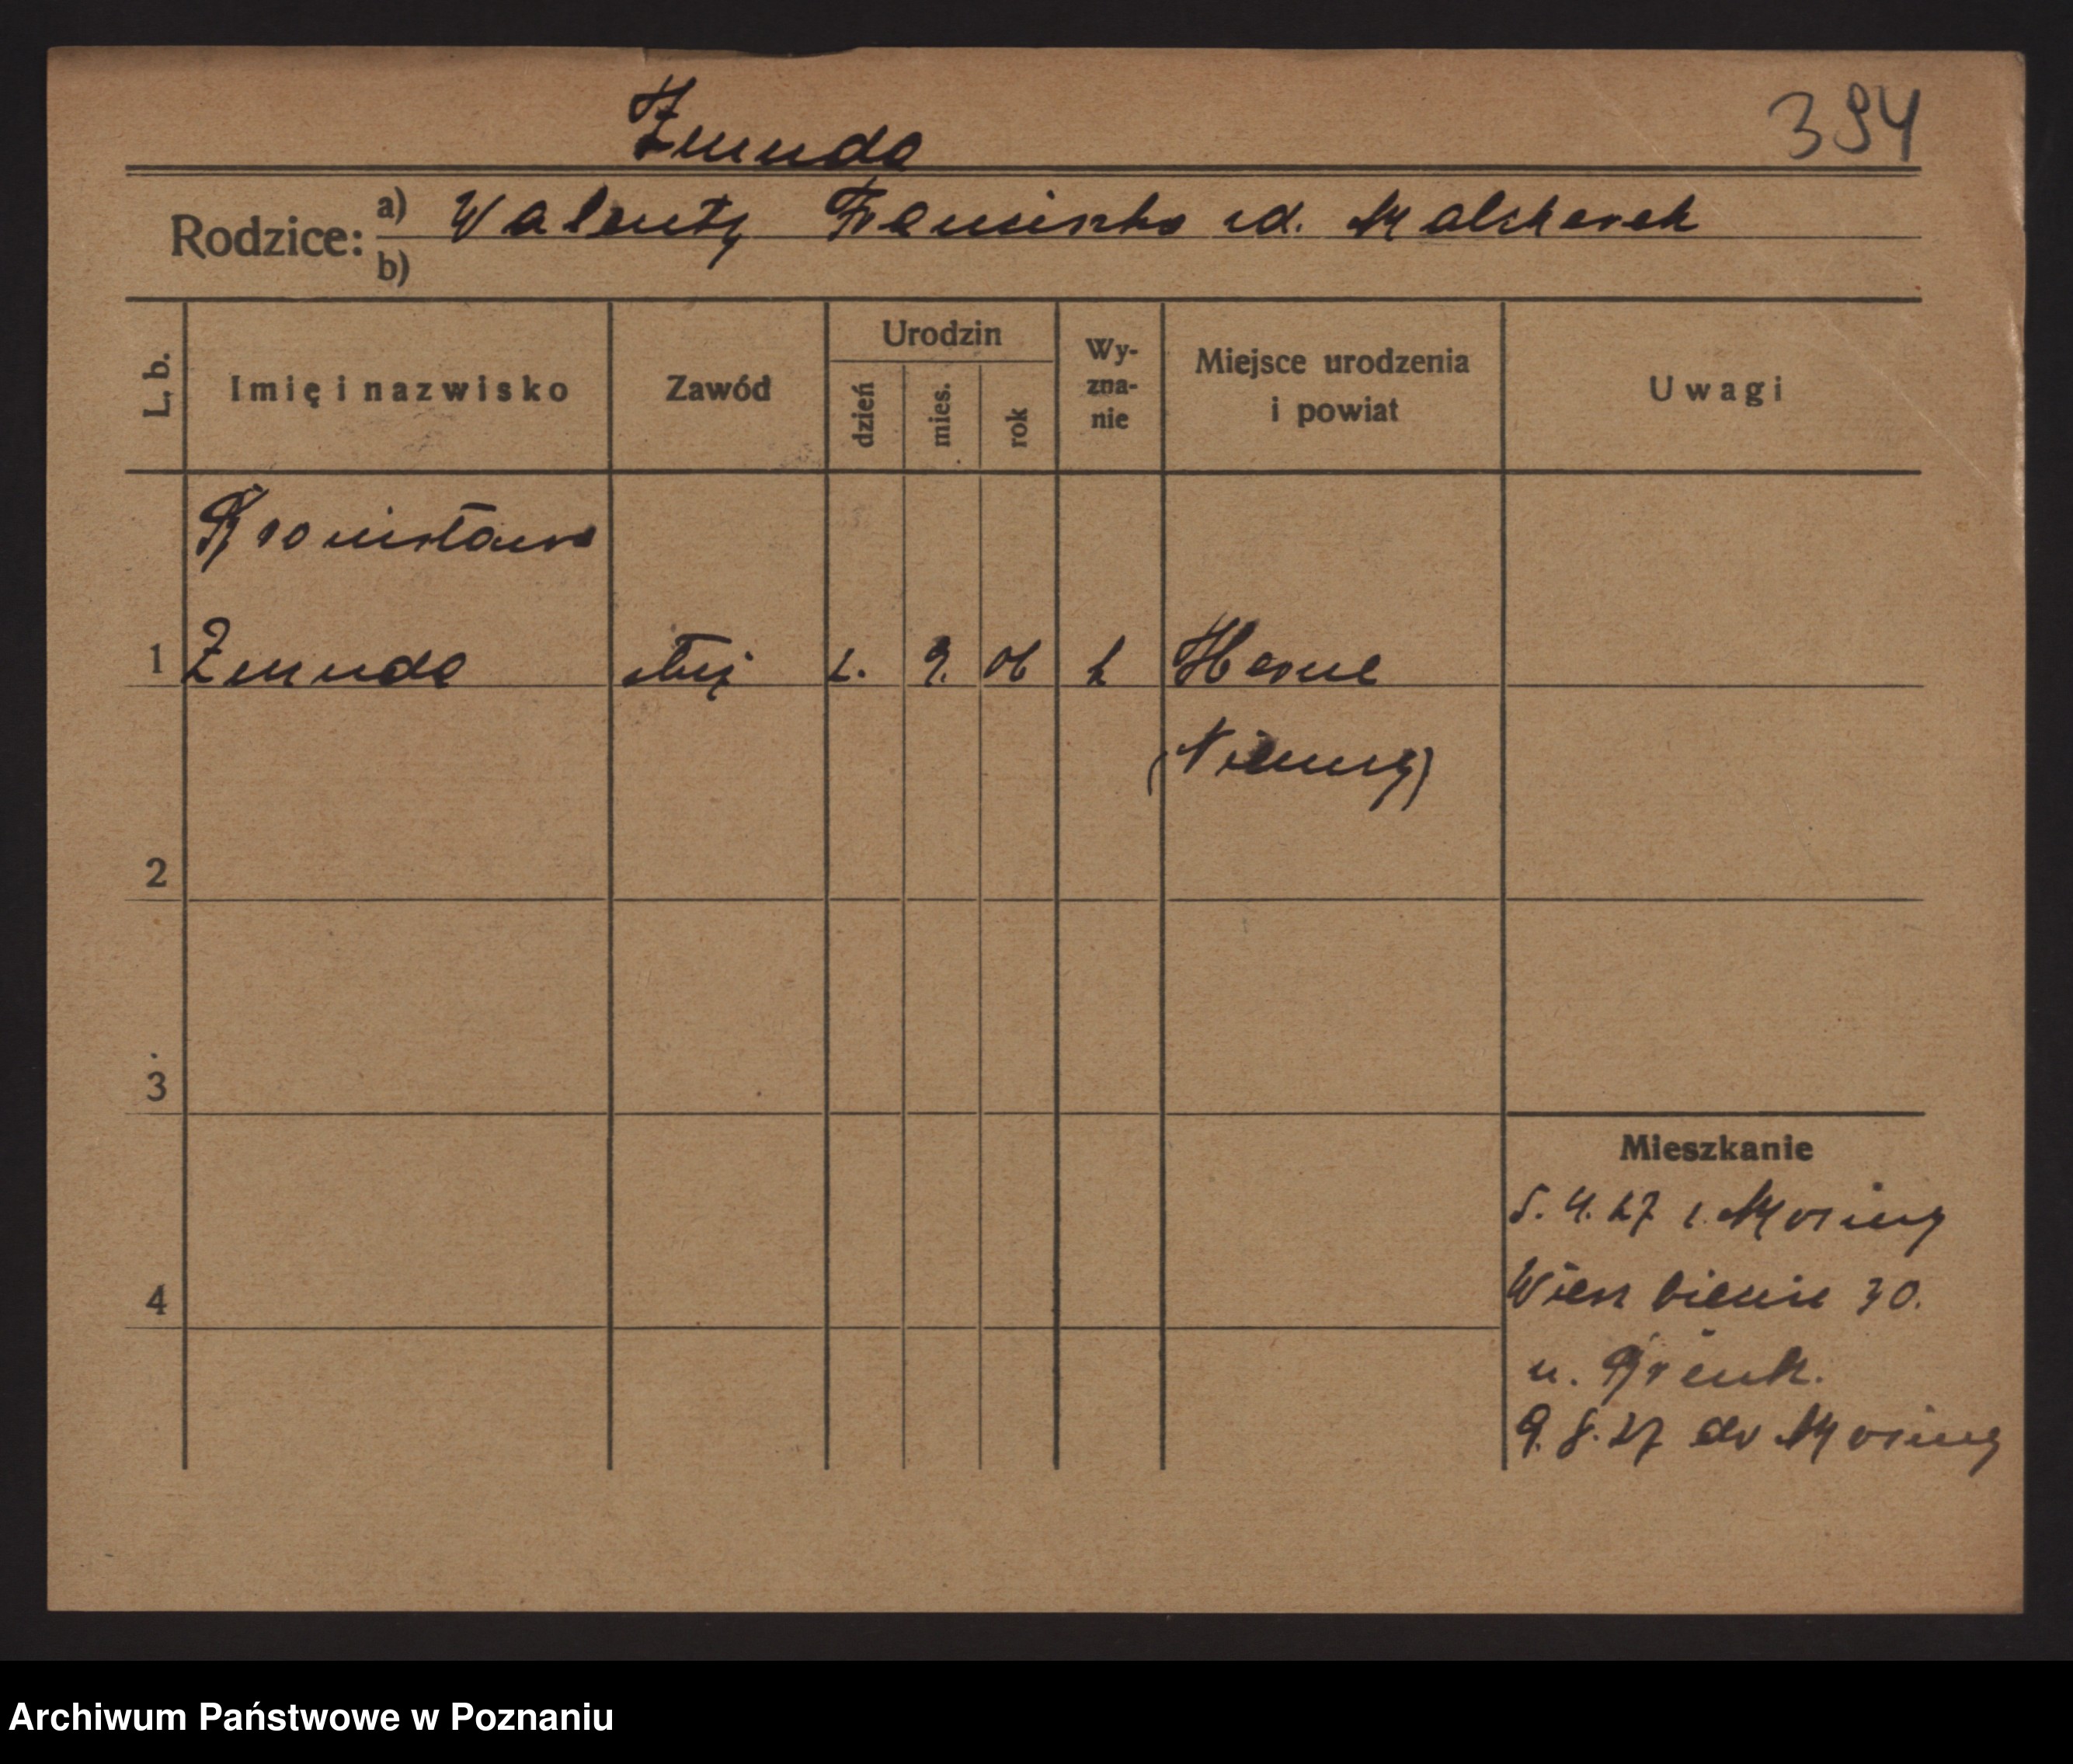 Zmuda
394
Rodzice: a) Walenty Franciszka zd. Malcherek
b)
L. b.
Imię i nazwisko
Zawód
Urodzin
dzień
mies.
rok
Wy-
zna-
nie
Miejsce urodzenia
i powiat
Uwagi
Bronisława
1 Zmuda służ 2. 9. 06 k Herne
(Niemcy)
2
3
4
Mieszkanie
5. 4. 27 z Mosiny
30.
u.
9. 8. 27 do Mosiny
Archiwum Państwowe w Poznaniu